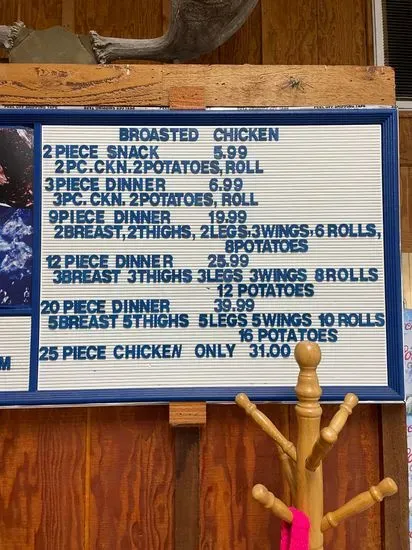 BROASTED CHICKEN
2 PIECE SNACK 5.99
2 PC. CKN. 2 POTATOES, ROLL
3 PIECE DINNER 6.99
3 PC. CKN. 2 POTATOES, ROLL
9 PIECE DINNER 19.99
2 BREAST, 2 THIGHS, 2 LEGS, 3 WINGS, 6 ROLLS,
8 POTATOES
12 PIECE DINNER 25.99
3 BREAST 3 THIGHS 3 LEGS 3 WINGS 8 ROLLS
12 POTATOES
20 PIECE DINNER 39.99
5 BREAST 5 THIGHS 5 LEGS 5 WINGS 10 ROLLS
16 POTATOES
25 PIECE CHICKEN ONLY 31.00
M